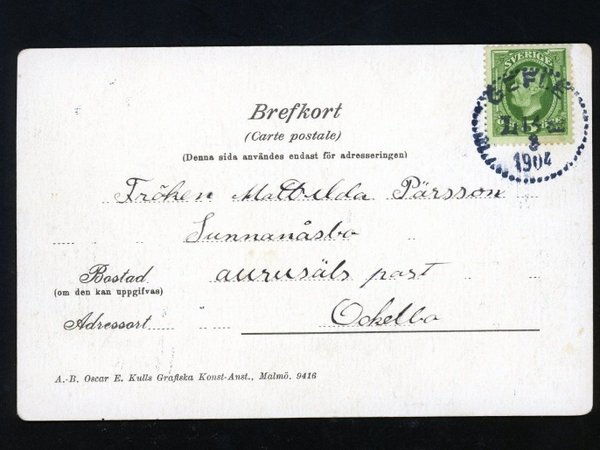 SVERIGE
GEFLE
1904
Brefkort
(Carte postale)
(Denna sida användes endast för adresseringen)
Fröken Mathilda Pärsson
Sunnanåsbo
Bostad
(om den kan uppgifvas)
post
Adressort
Ockelbo
A.-B. Oscar E. Kulls Grafiska Konst-Anst., Malmö. 9416